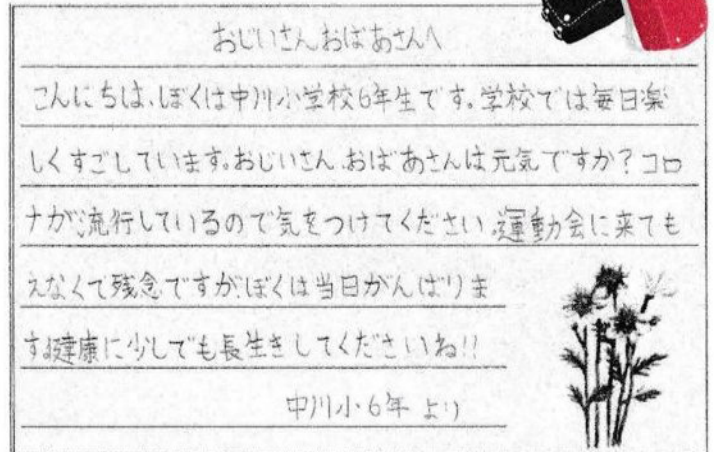 おじいさんおばあさんへ
こんにちは、ぼくは中川小学校6年生です。学校では毎日楽
しくすごしています。おじいさん、おばあさんは元気ですか？コロ
ナが流行しているので気をつけてください。運動会に来ても
えなくて残念ですが、ぼくは当日がんばりま
す。健康に少しでも長生きしてくださいね!!
中川小6年 より